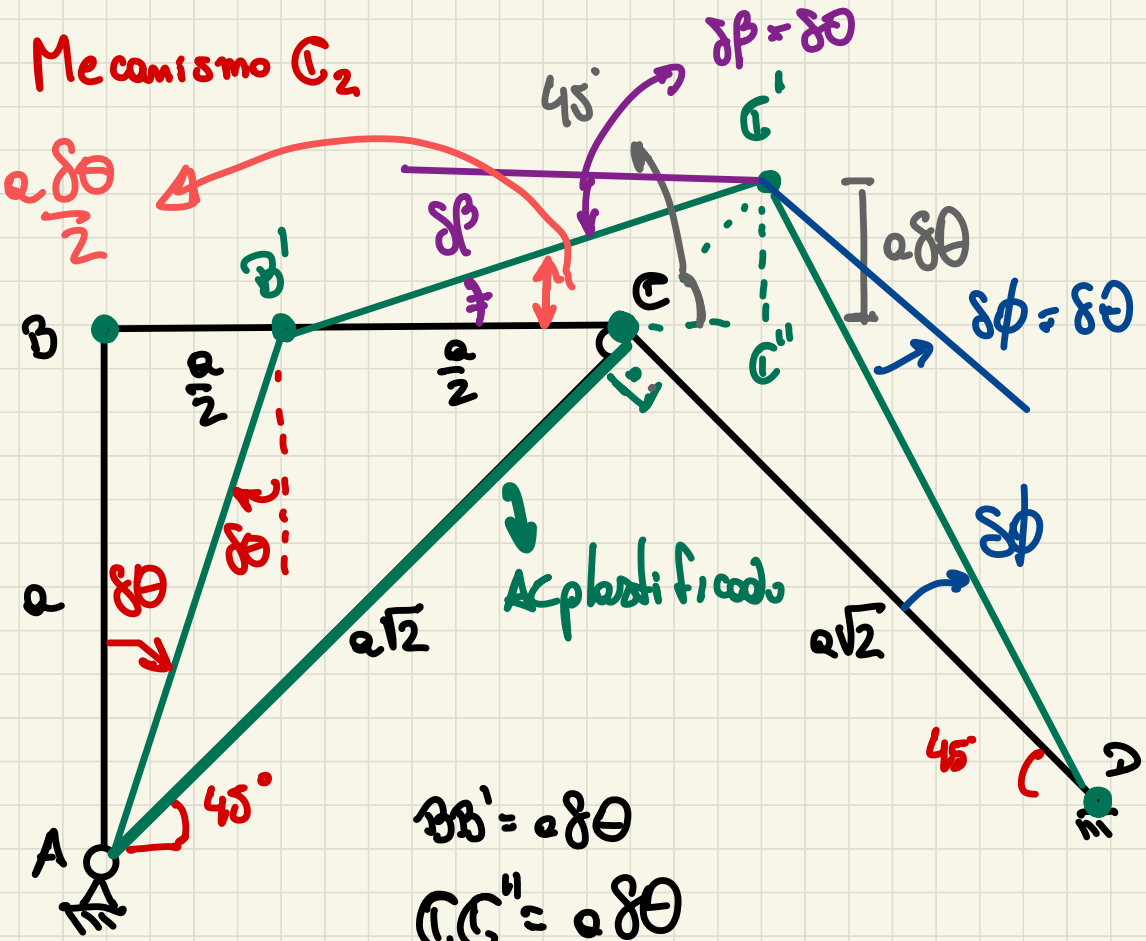 Mecanismo C₂
δβ = δθ
45°
C'
aδθ/2
δβ
B'
C
aδθ
δϕ = δθ
B
a/2
a/2
C''
δθ
δϕ
a
δθ
AC plastificado
a√2
a√2
45°
45°
D
A
BB' = aδθ
CC'' = aδθ